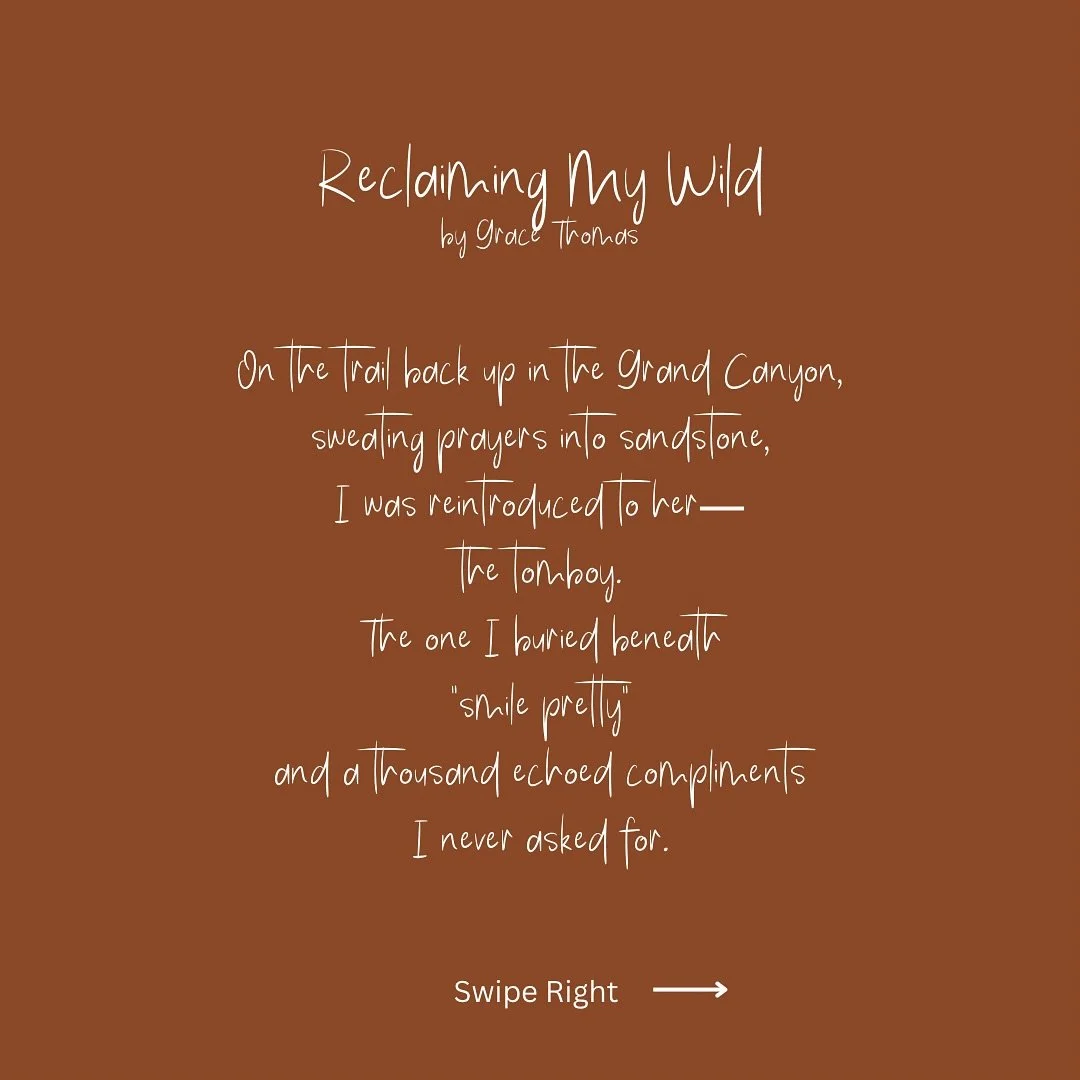 Reclaiming My Wild
by Grace Thomas
On the trail back up in the Grand Canyon,
sweating prayers into sandstone,
I was reintroduced to her—
the tomboy.
The one I buried beneath
"smile pretty"
and a thousand echoed compliments
I never asked for.
Swipe Right